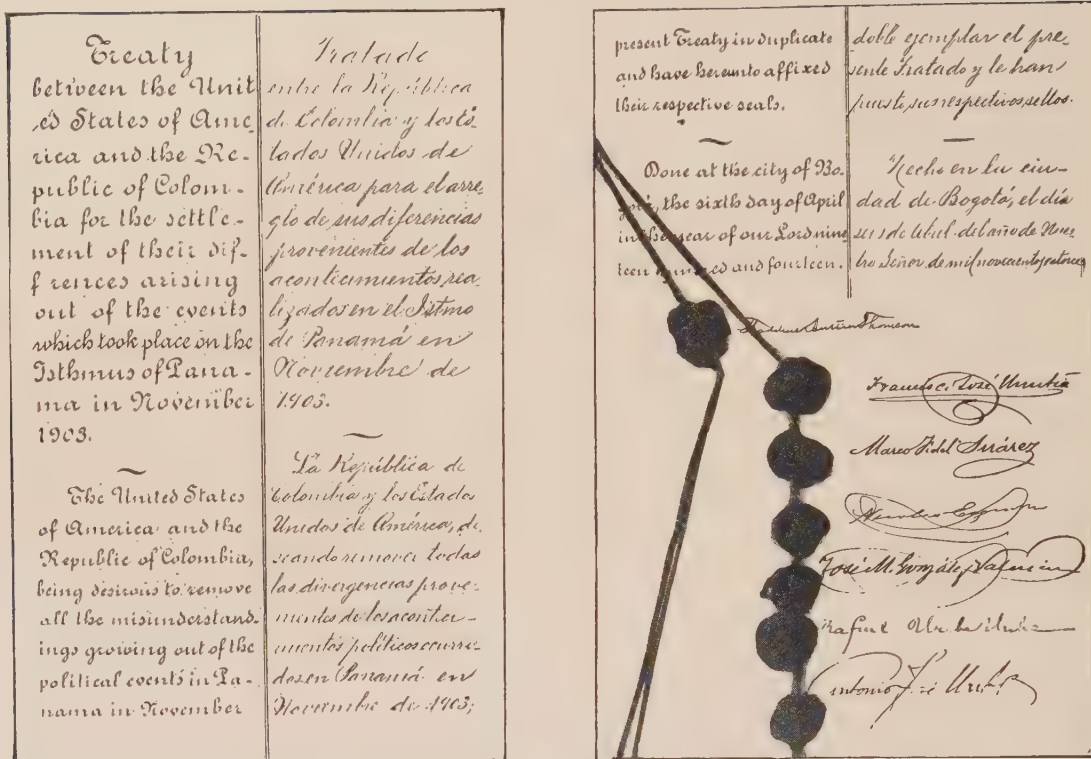 Treaty
between the Unit
ed States of Ame-
rica and the Re-
public of Colom-
bia for the settle-
ment of their dif-
f rences arising
out of the events
which took place on the
Isthmus of Pana-
ma in November
1903.
The United States
of America and the
Republic of Colombia,
being desirous to remove
all the misunderstand-
ings growing out of the
political events in Pa-
nama in November
Tratado
entre la República
de Colombia y los Es-
tados Unidos de
América para el arre-
glo de sus diferencias
provenientes de los
acontecimientos rea-
lizados en el Istmo
de Panamá en
Noviembre de
1903.
La República de
Colombia y los Estados
Unidos de América, de-
seando remover todas
las divergencias prove-
nientes de los aconteci-
mientos políticos ocurri-
dos en Panamá en
Noviembre de 1903;
present Treaty in duplicate
and have hereunto affixed
their respective seals.
Done at the city of Bo-
gotá, the sixth day of April
in the year of our Lord nine
teen hundred and fourteen.
doble ejemplar el pre-
sente Tratado y le han
puesto sus respectivos sellos.
Hecho en la ciu-
dad de Bogotá, el día
seis de abril del año de Nues-
tro Señor de mil novecientos catorce
Thaddeus Austin Thomson
Francisco José Urrutia
Marco Fidel Suárez
José M. González Valencia
Rafael Uribe Uribe
Antonio José Uribe